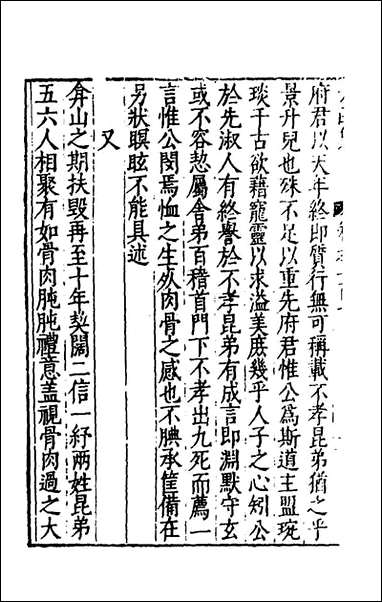 府君以天年終即質行無可稱載不孝昆弟猶之乎
景升兒也殊不足以重先府君惟公爲斯道主盟琬
琰千古欲藉寵靈以求溢美庶幾乎人子之心矧公
於先淑人有終譽於不孝昆弟有成言即淵默守玄
或不容恝屬舍弟百稽首門下不孝出九死而薦一
言惟公閔焉恤之生死肉骨之感也不腆承筐備在
另狀瞑眩不能具述
又
弇山之期扶毀再至十年契闊二信一紓兩姓昆弟
五六人相聚有如骨肉肫肫禮意蓋視骨肉過之大